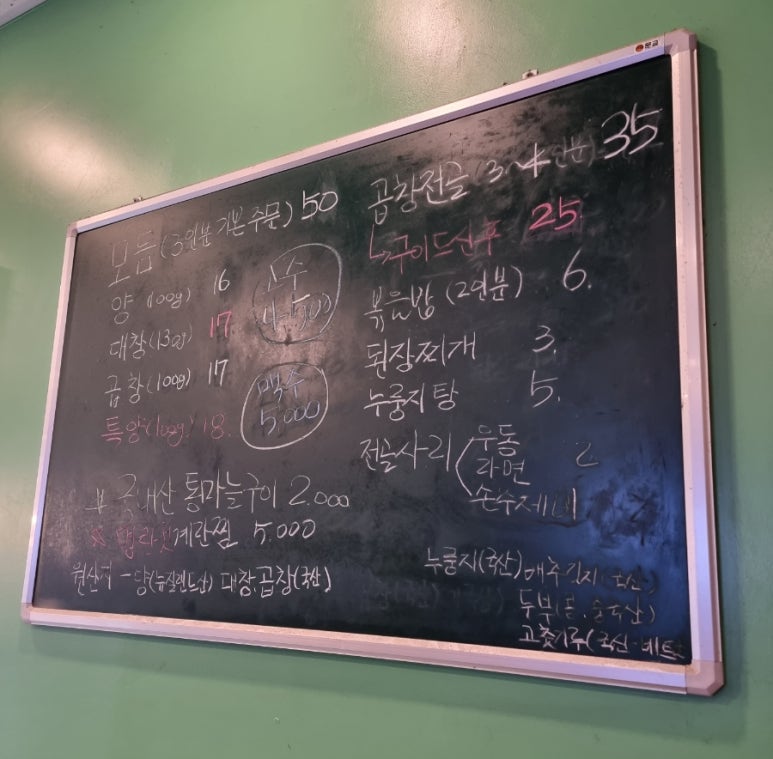 문교
모듬 (3인분 기본 주문) 50
양 (100g) 16
대창 (130g) 17
곱창 (100g) 17
특양 (100g) 18.
맥주
5.000
국내산 통마늘구이 2.000
계란찜 5.000
원산지 - 양(뉴질랜드산) 대창, 곱창(국산)
곱창전골 (3~4인분) 35
구이드신후 25
볶음밥 (2인분) 6.
된장찌개 3.
누룽지탕 5.
전골사리 우동 2
라면
손수제비
누룽지(국산) 배추김치
두부
고춧가루